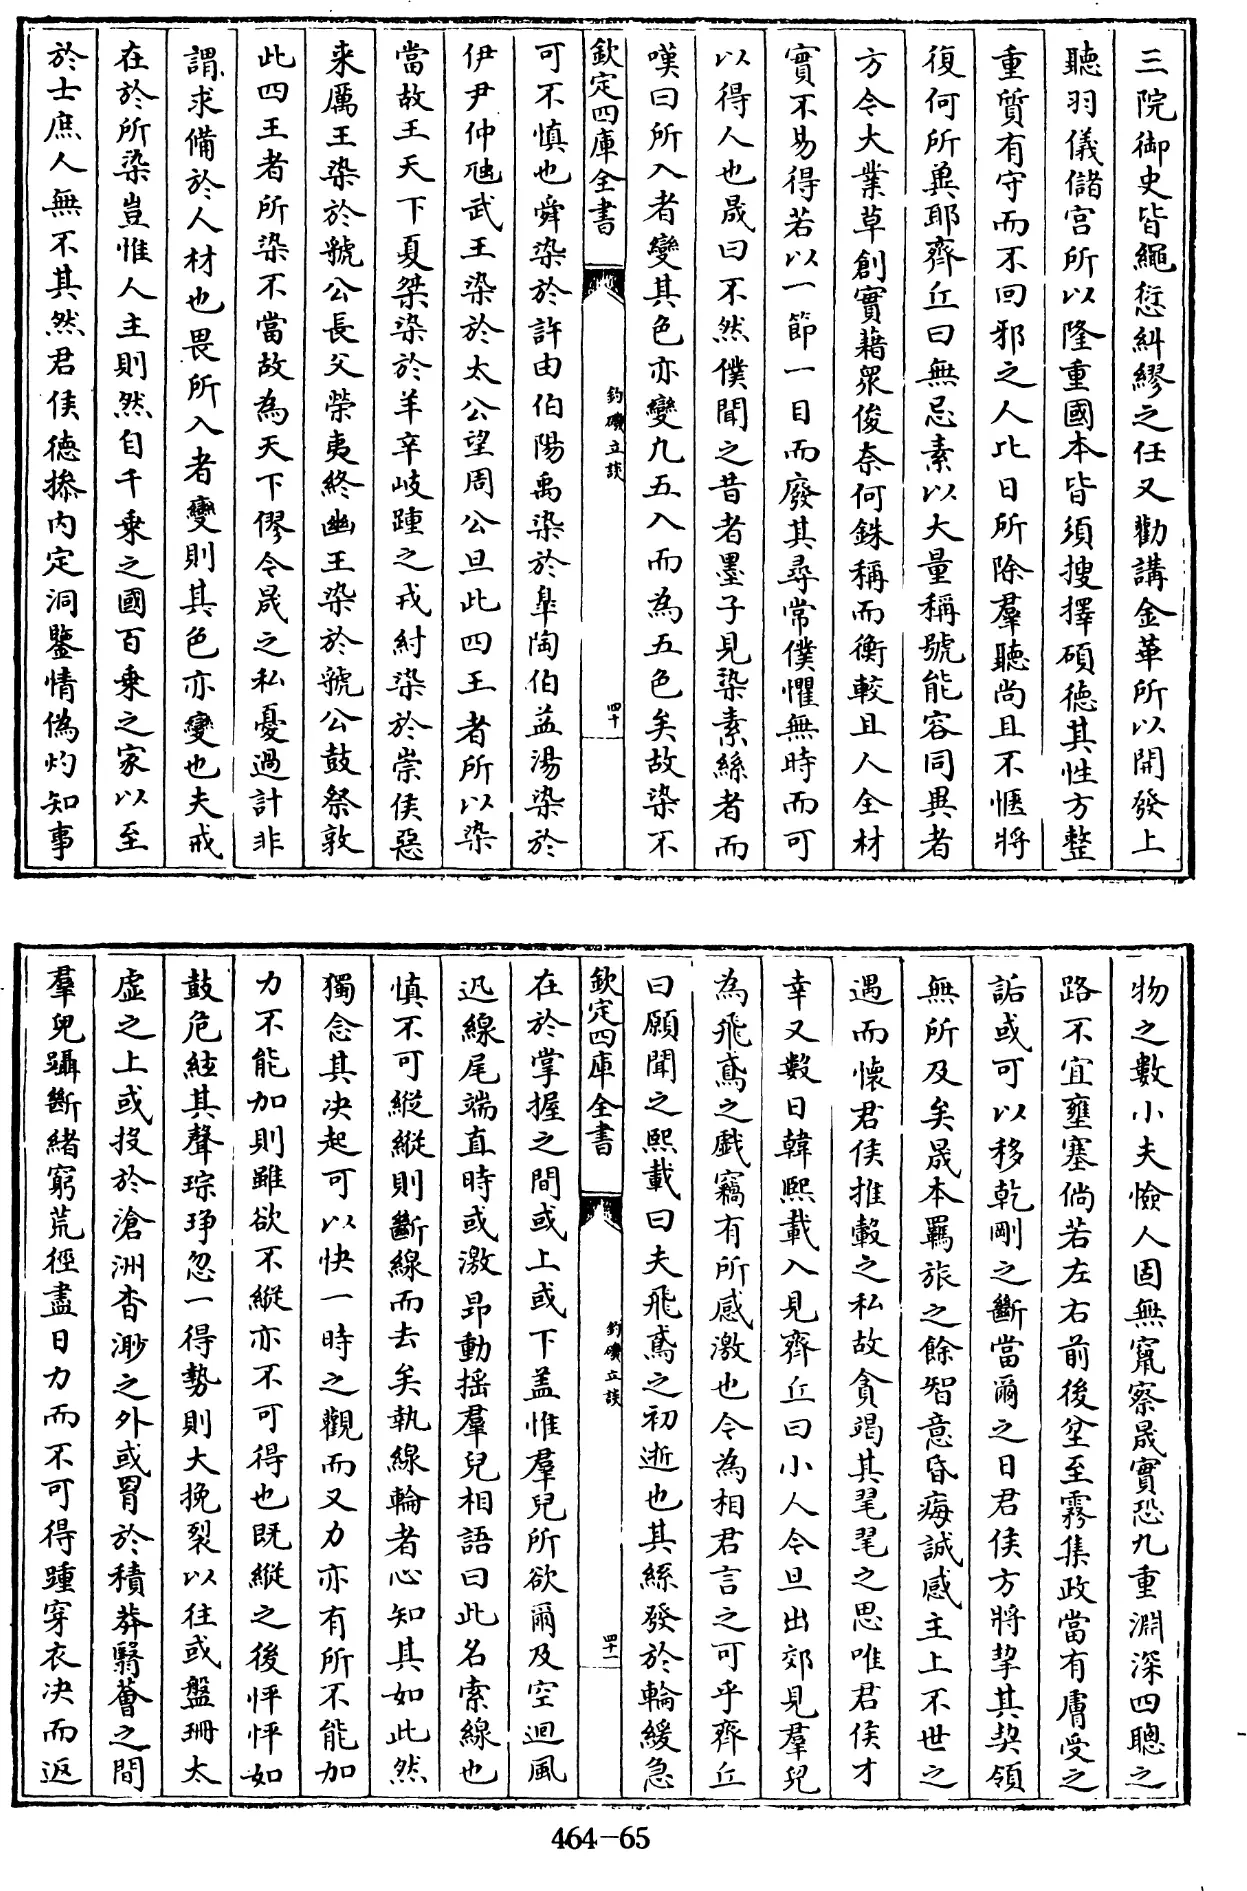 三院御史皆繩愆糾繆之任又勸講金華所以開發上
聽羽儀儲宮所以隆重國本皆須搜擇碩德其性方整
重質有守而不回邪之人比日所除羣聽尚且不愜將
復何所兾耶齊丘曰無忌素以大量稱號能容同異者
方今大業草創實藉衆俊奈何銖稱而衡較且人全材
實不易得若以一節一目而廢其尋常僕懼無時而可
以得人也晟曰不然僕聞之昔者墨子見染素絲者而
嘆曰所入者變其色亦變九五入而為五色矣故染不
欽定四庫全書
釣磯立談
四十
可不慎也舜染於許由伯陽禹染於臯陶伯益湯染於
伊尹仲虺武王染於太公望周公旦此四王者所以染
當故王天下夏桀染於羊辛岐踵之戎紂染於崇侯惡
来厲王染於虢公長父榮夷終幽王染於虢公鼓祭敦
此四王者所染不當故為天下僇今晟之私憂過計非
謂求備於人材也畏所入者變則其色亦變也夫戒
在於所染豈惟人主則然自千乗之國百乗之家以至
於士庶人無不其然君侯德摻内定洞鑒情偽灼知事
物之數小夫憸人固無窺察晟實恐九重淵深四聰之
路不宜壅塞倘若左右前後坌至霧集政當有膚受之
詬或可以移乾剛之斷當爾之日君侯方將挈其契領
無所及矣晟本羈旅之餘智意昏痗誠感主上不世之
遇而懷君侯推轂之私故貪竭其毣毣之思唯君侯才
幸又數日韓熙載入見齊丘曰小人今旦出郊見羣兒
為飛鳶之戲竊有所感激也今為相君言之可乎齊丘
曰願聞之熙載曰夫飛鳶之初逝也其絲發於輪緩急
欽定四庫全書
釣磯立談
四十一
在於掌握之間或上或下盖惟羣兒所欲爾及空迴風
迅線尾端直時或激昻動揺羣兒相語曰此名索線也
慎不可縱縱則斷線而去矣執線輪者心知其如此然
獨念其决起可以快一時之觀而又力亦有所不能加
力不能加則雖欲不縱亦不可得也既縱之後怦怦如
鼓危絃其聲琮琤忽一得勢則大挽裂以往或盤珊太
虛之上或投於滄洲杳渺之外或罥於積莽翳薈之間
羣兒躡斷緒窮荒徑盡日力而不可得踵穿衣决而返
464-65